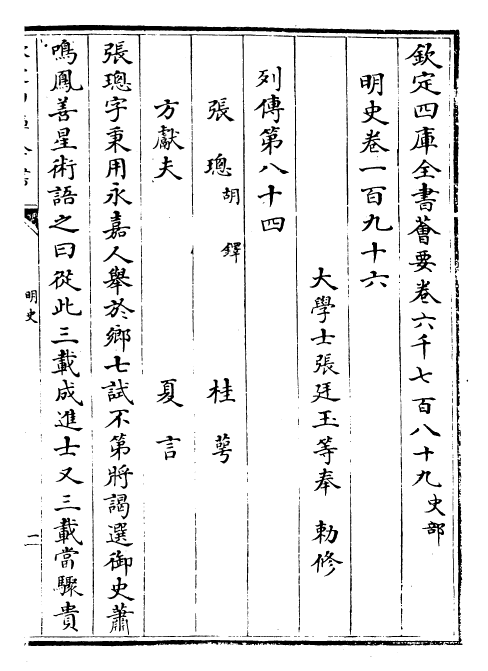 欽定四庫全書薈要卷六千七百八十九史部
明史卷一百九十六
大學士張廷玉等奉 勅修
列傳第八十四
張璁胡鐸 桂萼
方獻夫 夏言
張璁字秉用永嘉人舉於鄉七試不第將謁選御史蕭
鳴鳳善星術語之曰從此三載成進士又三載當驟貴
明史
一